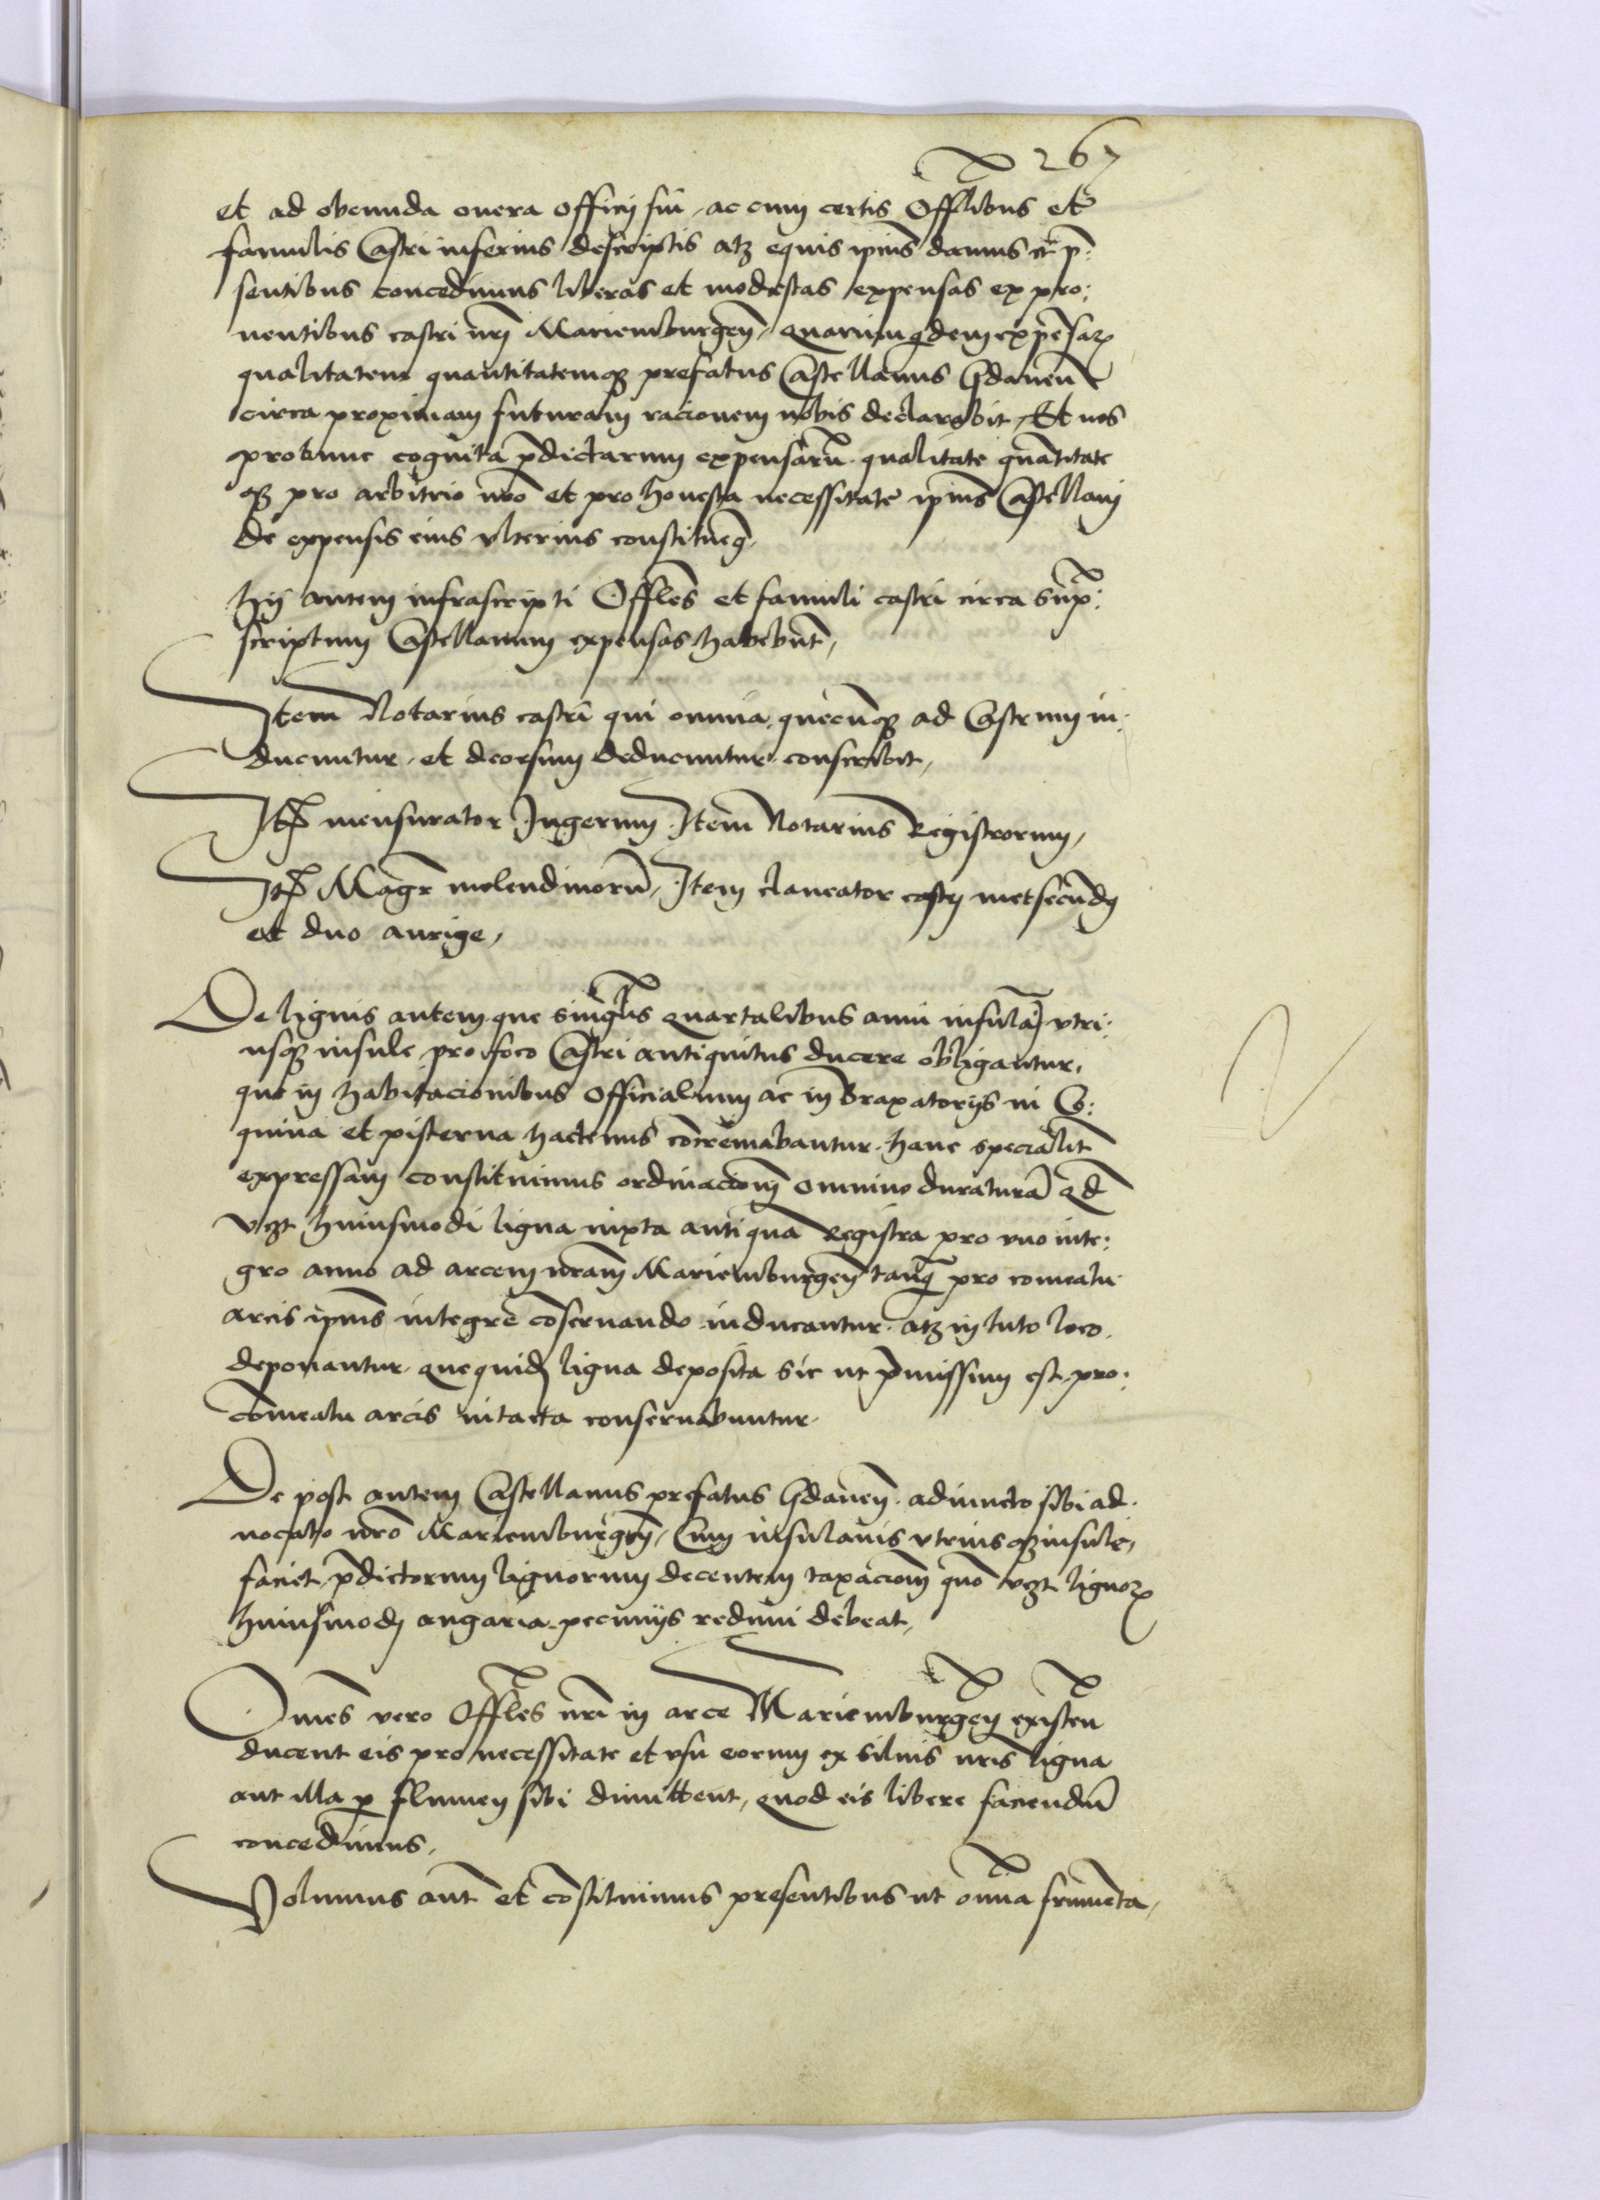 267
et ad obeunda onera officij sui, ac cum certis Offlibus et
famulis Castri inferius descriptis atqz equis ipius damus et p̃:
sentibus concedimus liberas et modestas expensas ex pro:
uentibus castri nr̃i Mariemburgeñ, quarumq̃dem expẽsaꝝ
qualitatem quantitatemqz prefatus Castellanus Gdaneñ
circa proximam futuram racionem nobis declarabit, Et nos
protunc cognita p̃dictarum expensarũ qualitate quãtitate
qz pro arbitrio nr̃o et pro honesta necessitate ipius Castellani
de expensis eius vlterius constituem9,
Hij autem infrascripti Offles et famuli castri circa sup̃:
scriptum Castellanum expensas habebũt,
Item Notarius castri qui omnia quecũqz ad Castrum in:
ducuntur, et deorsum deducuntur conscribit,
Itẽ mensurator Jugerum Item Notarius Registrorum,
Itẽ Magr̃ molendinorũ, Item claueator castri
et duo aurige,
De lignis autem que singulis quartalibus anni insulañ vtri:
usqz insule pro foco Castri antiquitus ducere obligantur,
que in habitacionibus Officialium ac in braxatorijs in Co:
quina et pisterna hactenus cõcremabantur, hanc specialit̃
expressam constituimus ordinacioñem omnino duraturã qd̃
vzt huiusmodi ligna iuxta antiqua Registra pro vno inte:
gro anno ad arcem nr̃am Mariemburgeñ tanq̃ pro comeatu
arcis ipius integre cõseruando inducantur, atqz in tuto loco
deponantur, que quidẽ ligna deposita sic ut p̃missum est pro:
comeatu arcis intacta conseruabuntur.
De post autem Castellanus prefatus Gdaneñ adiuncto sibi ad:
uocato nr̃o Mariemburgeñ, Cum insulanis vtriusqz insule,
faciet p̃dictorum lignorum decentem taxacionẽ quo vzt lignoꝝ
huiusmodi angaria pecunijs redimi debeat,
Omẽs vero Offles nr̃i in arce Mariemburgeñ existeñ
ducent eis pro necessitate et vsu eorum ex siluis nr̃is ligna
aut illa ꝑ flumen sibi dimittent, quod eis libere faciendũ
concedimus,
Volumus aut̃ et cõstituimus presentibus ut om̃ia frumẽta,